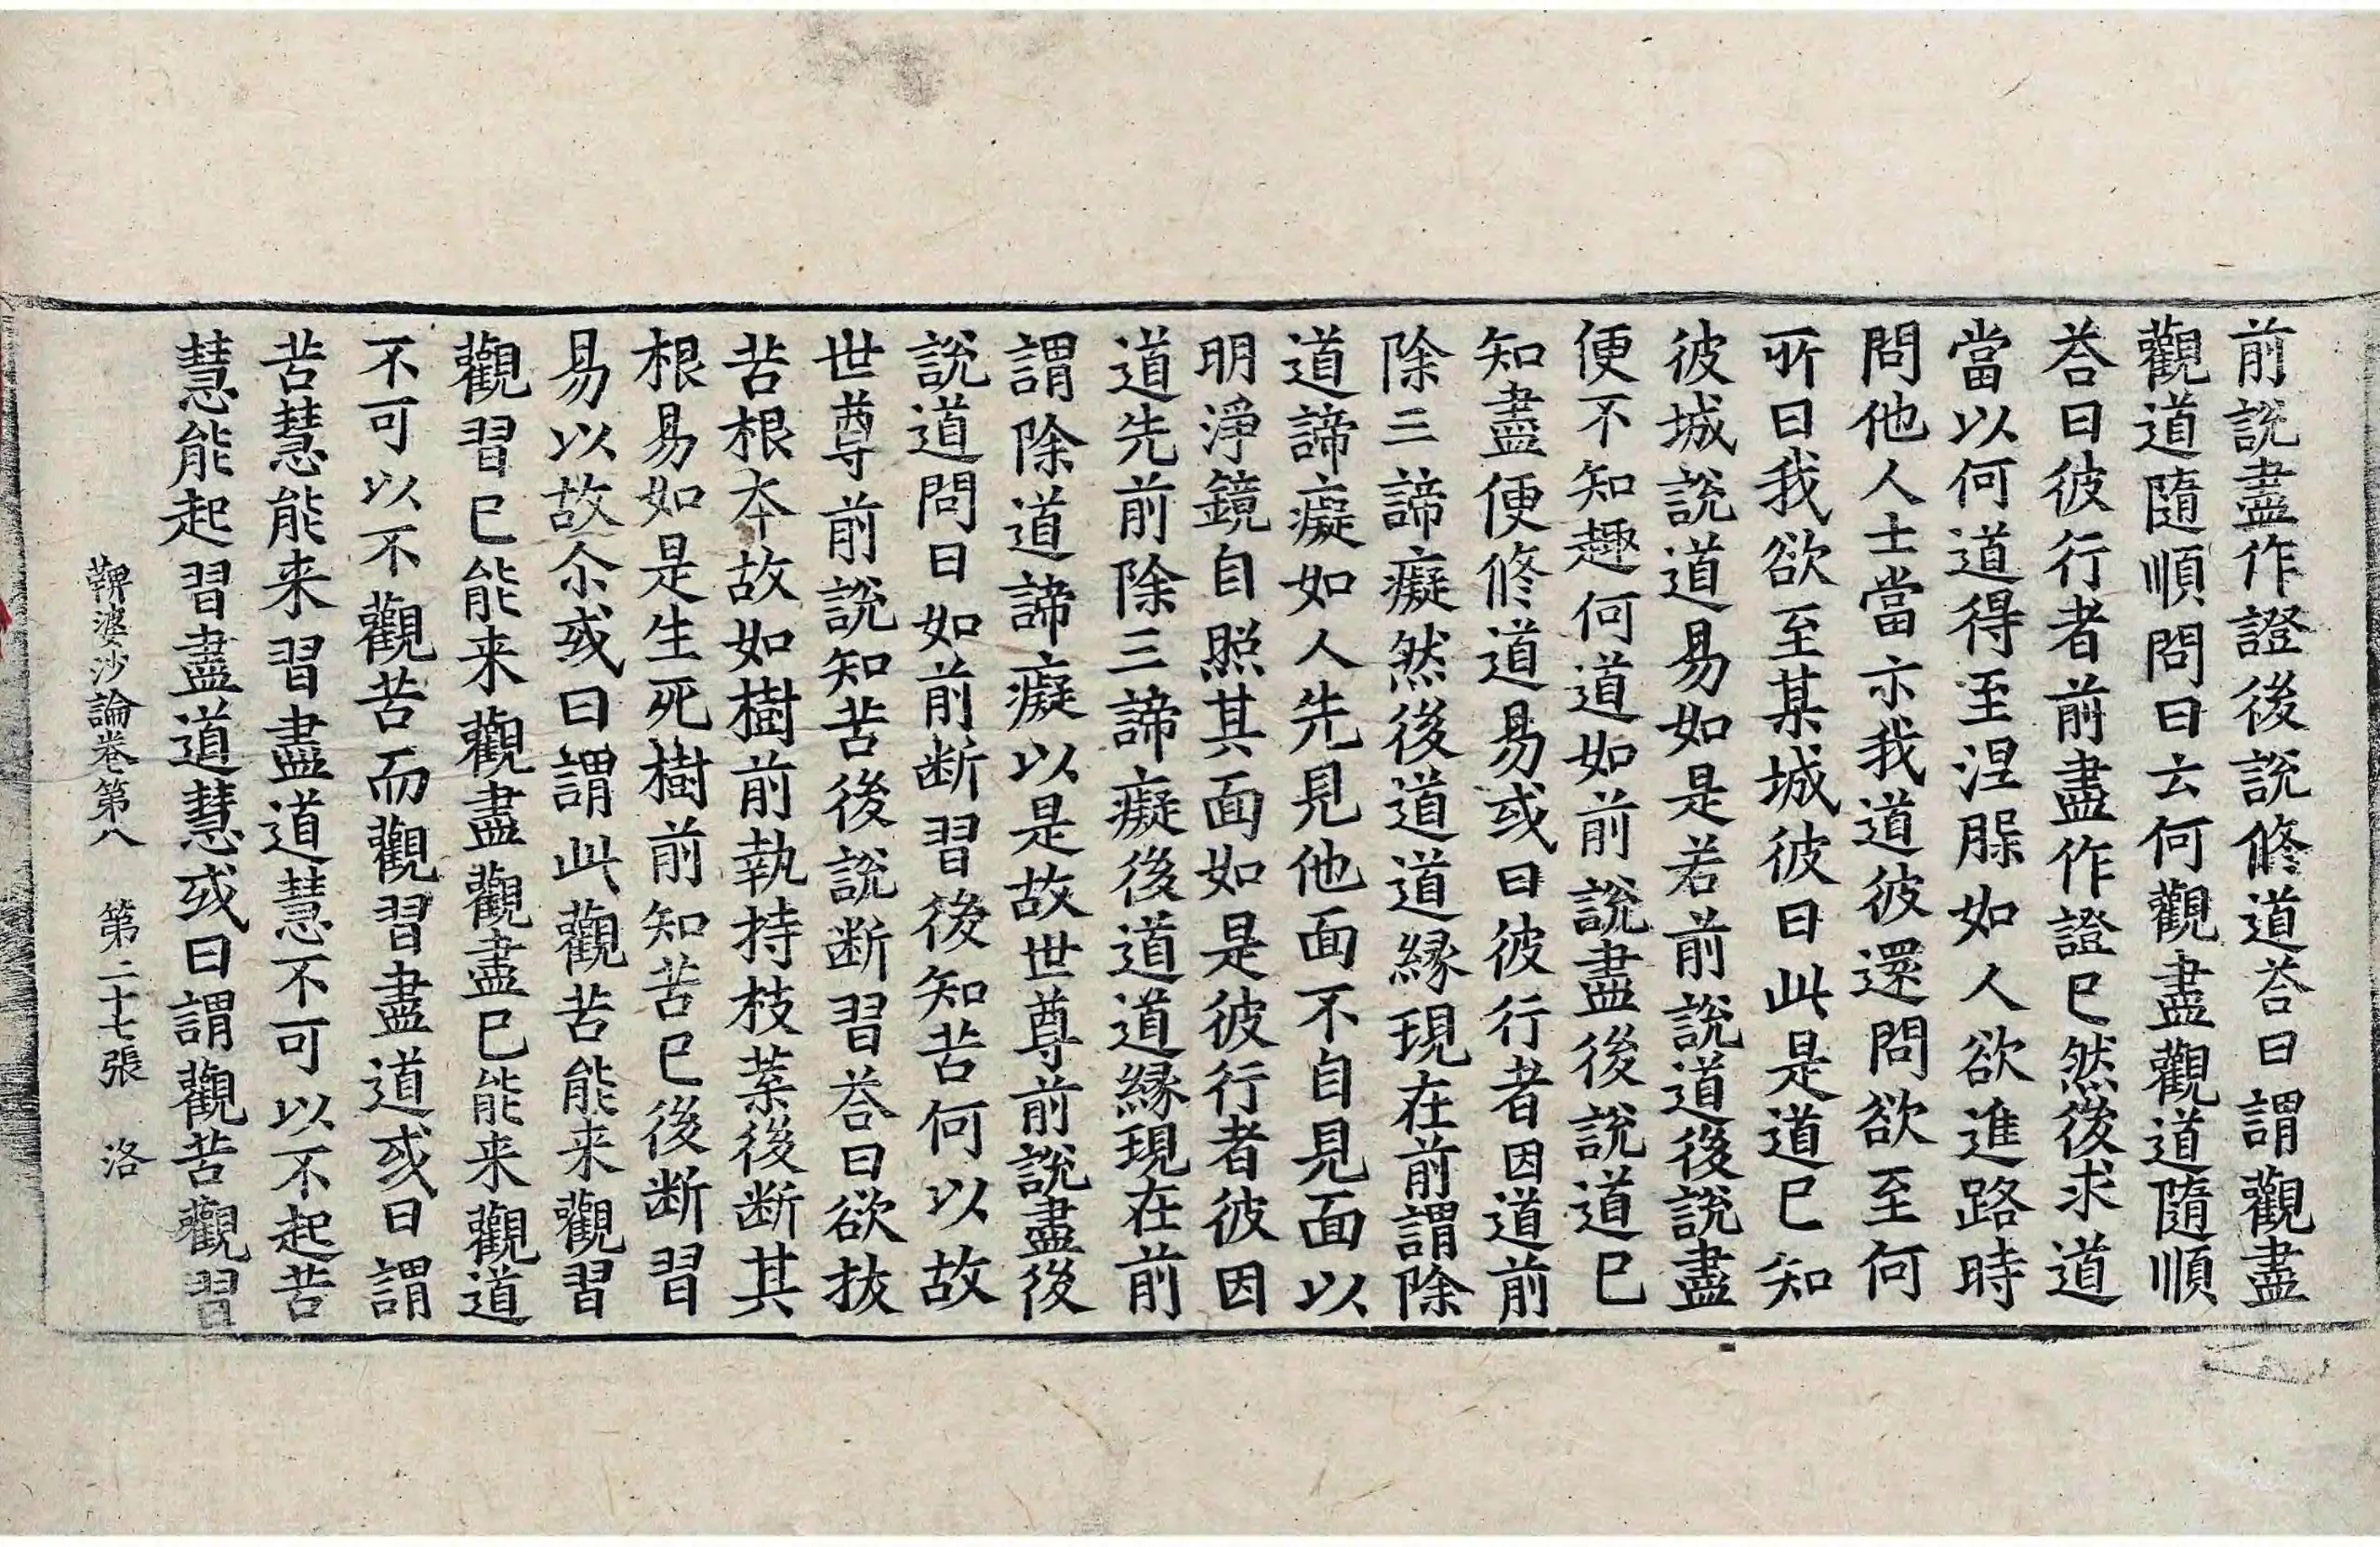 前說盡作證後說修道荅曰謂觀盡
觀道隨順問曰云何觀盡觀道隨順
荅曰彼行者前盡作證已然後求道
當以何道得至涅𦖠如人欲進路時
問他人士當示我道彼還問欲至何
所曰我欲至某城彼曰此是道已知
彼城說道易如是若前說道後說盡
便不知趣何道如前說盡後說道已
知盡便修道易或曰彼行者因道前
除三諦癡然後道道緣現在前謂除
道諦癡如人先見他面不自見面以
明淨鏡自照其面如是彼行者彼因
道先前除三諦癡後道道緣現在前
謂除道諦癡以是故世尊前說盡後
說道問曰如前断習後知苦何以故
世尊前說知苦後說断習荅曰欲拔
苦根本故如樹前執持枝葉後断其
根易如是生死樹前知苦已後断習
易以故尒或曰謂此觀苦能来觀習
觀習已能来觀盡觀盡已能来觀道
不可以不觀苦而觀習盡道或曰謂
苦慧能来習盡道慧不可以不起苦
慧能起習盡道慧或曰謂觀苦觀習
鞞婆沙論卷第八 第二十七張 洛